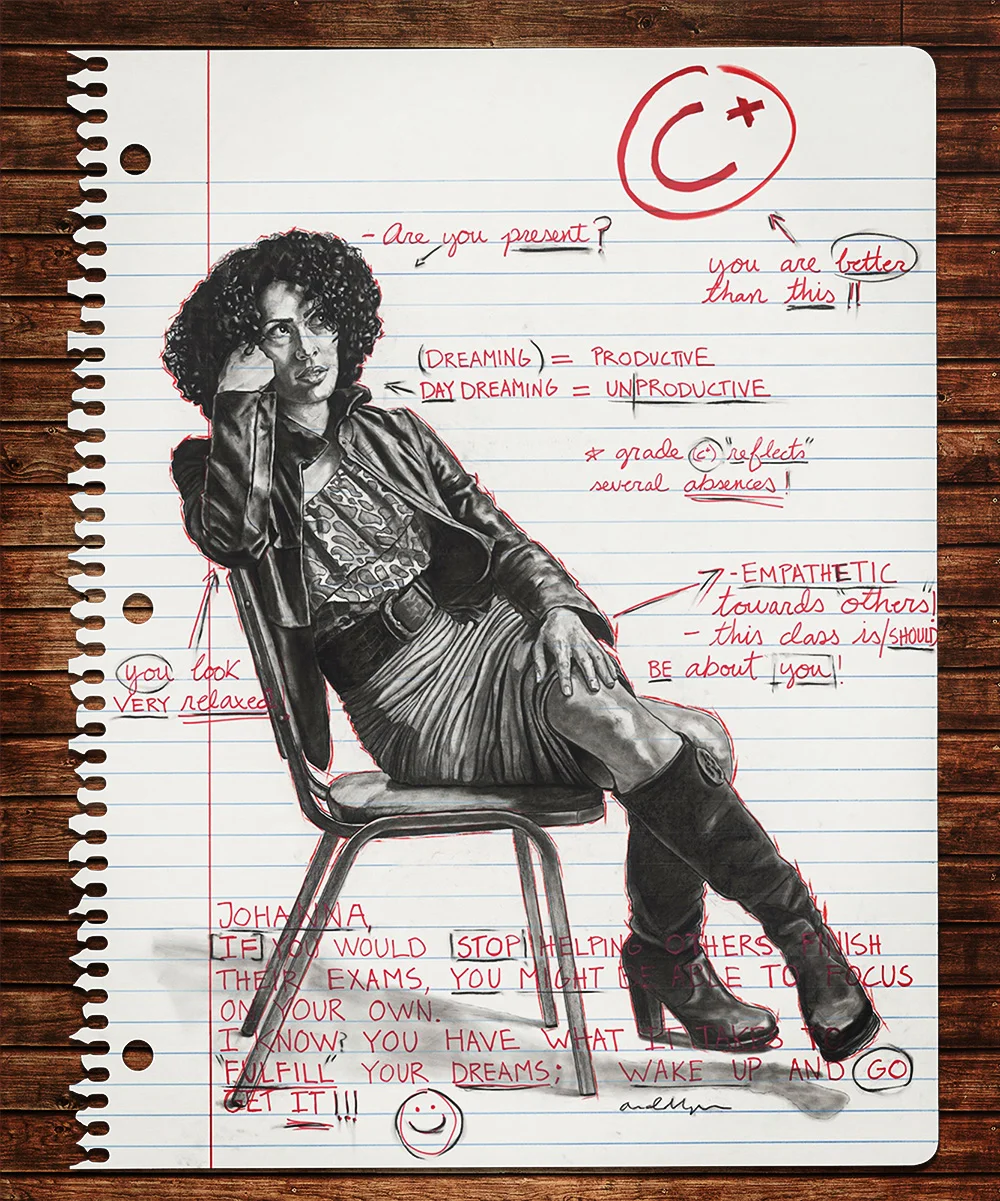 C+
- Are you present?
you are better
than this !!
(DREAMING) = PRODUCTIVE
DAYDREAMING = UN|PRODUCTIVE
* grade (C+) "reflects"
several absences!
- EMPATHETIC
towards "others"!
- this class is/SHOULD
BE about you!
you look
VERY relaxed
JOHANNA,
IF YOU WOULD STOP HELPING OTHERS FINISH
THEIR EXAMS, YOU MIGHT BE ABLE TO FOCUS
ON YOUR OWN.
I KNOW? YOU HAVE WHAT IT TAKES TO
"FULFILL" YOUR DREAMS; WAKE UP AND GO
GET IT!!!